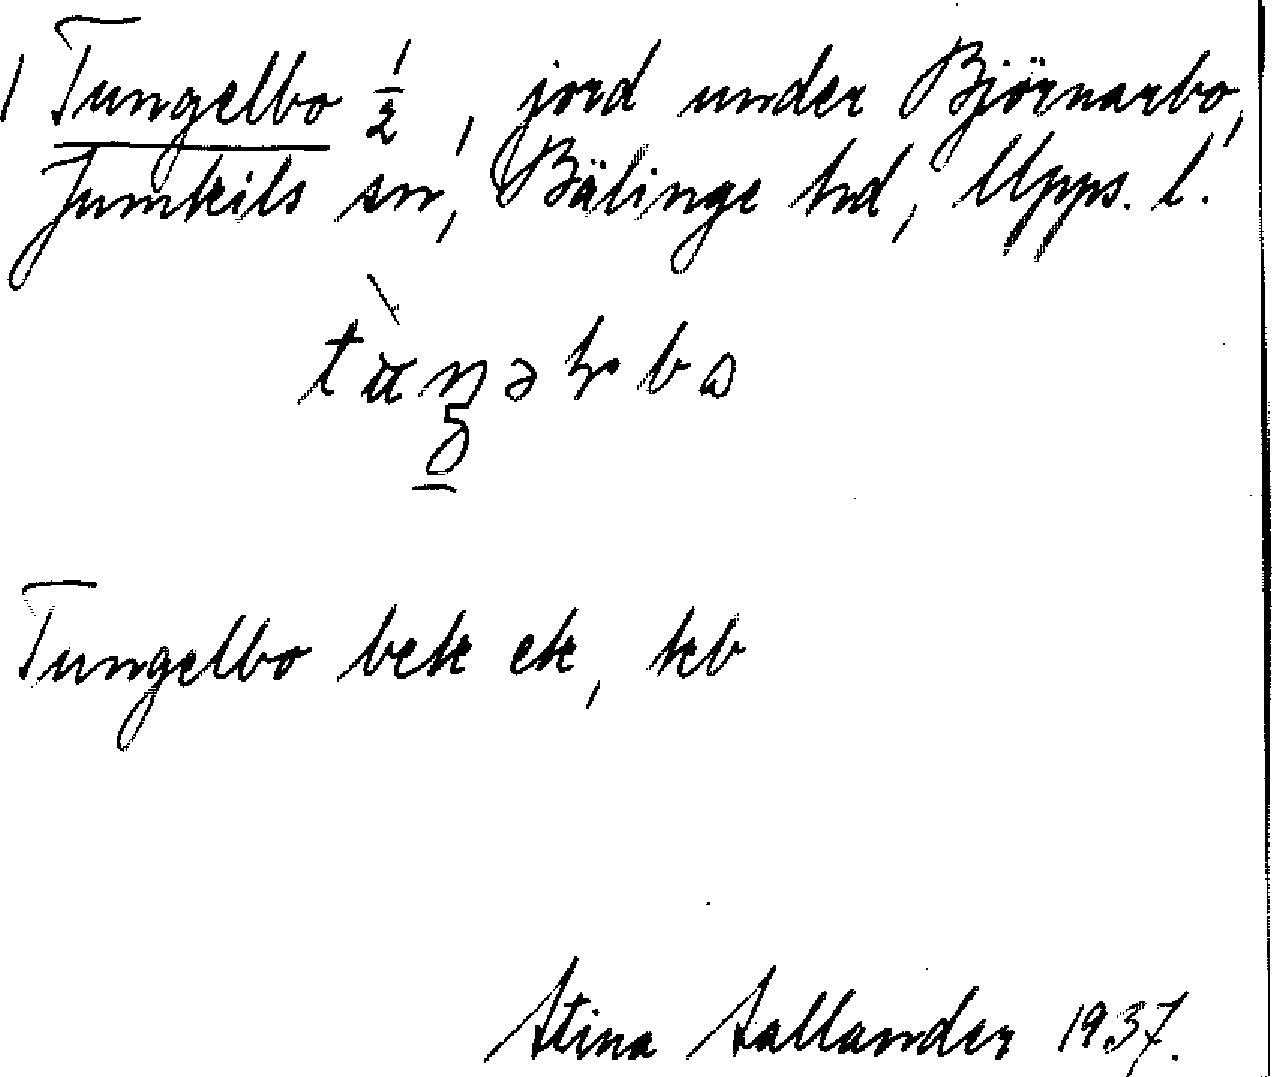 1 Tungelbo 1/2, jord under Björnarbo,
Jumkils sn, Bälinge hd, Upps. l.
Tungelbo bek ek, kb
Stina Sallander 1937.